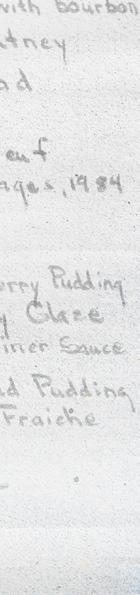 with bourbon
utney
nd
euf
ages, 1984
erry Pudding
y Glaze
iner Sauce
ld Pudding
Fraiche